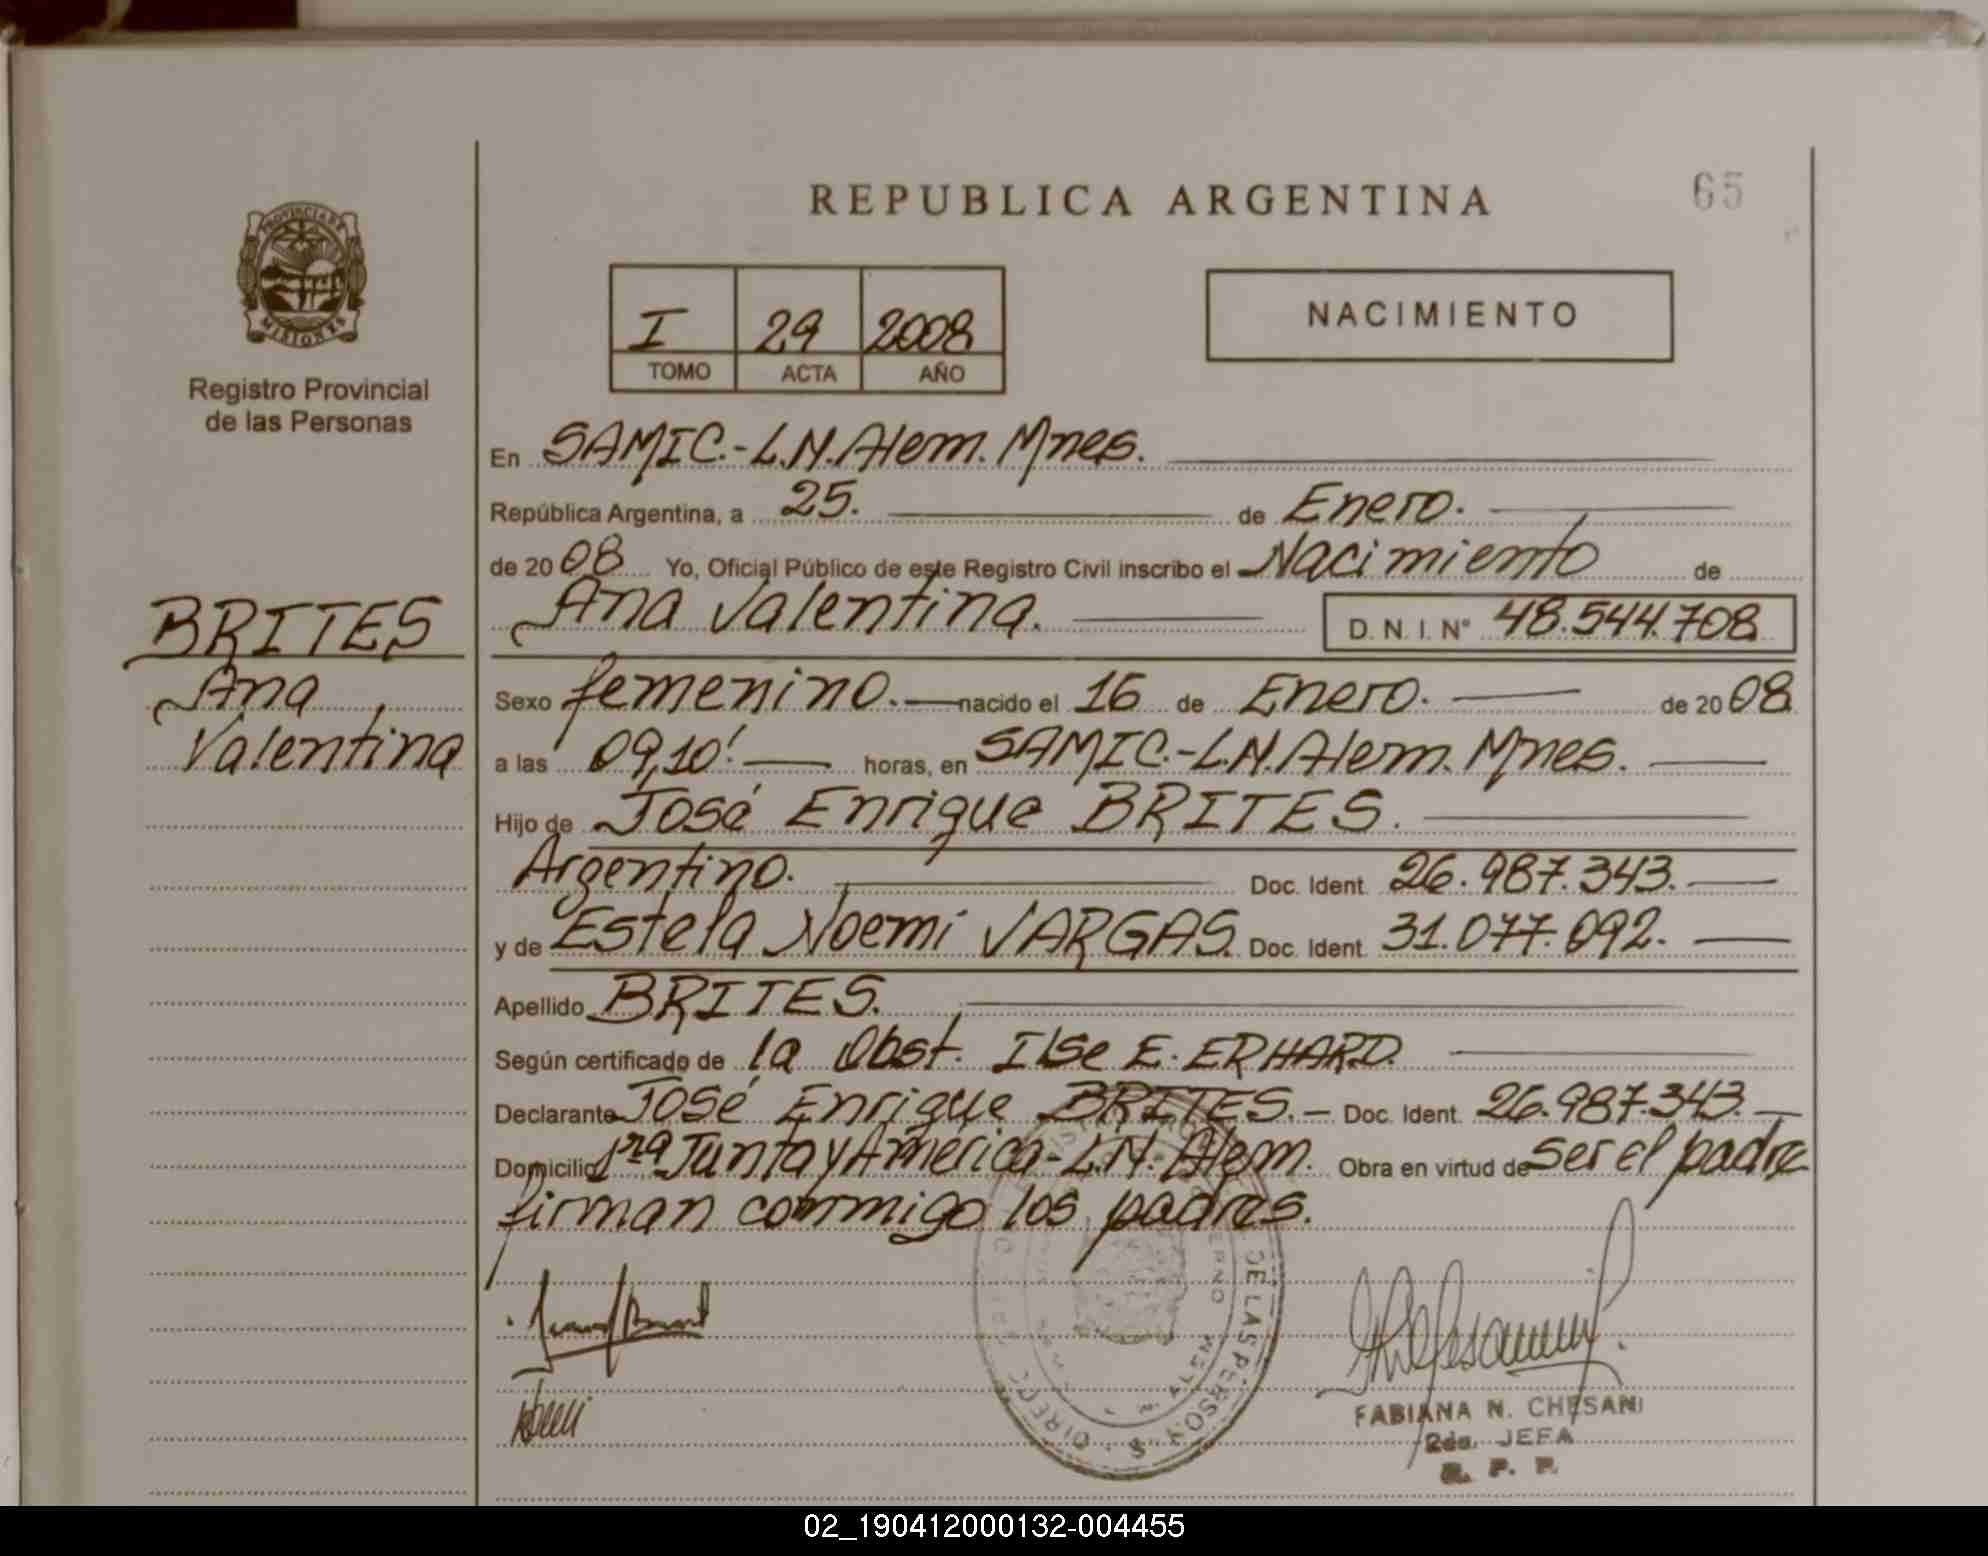 REPUBLICA ARGENTINA
65
PROVINCIA DE
MISIONES
Registro Provincial
de las Personas
I 29 2008
TOMO ACTA AÑO
NACIMIENTO
En SAMIC.-L.N.Alem. Mnes.
República Argentina, a 25. de Enero.
de 2008 Yo, Oficial Público de este Registro Civil inscribo el Nacimiento de
Ana Valentina. D.N.I. N° 48.544.708
BRITES
Ana
Valentina
Sexo femenino. nacido el 16 de Enero. de 2008
a las 09,10' horas, en SAMIC.-L.N.Alem. Mnes.
Hijo de José Enrique BRITES.
Argentino. Doc. Ident. 26.987.343.
y de Estela Noemi VARGAS. Doc. Ident. 31.077.092.
Apellido BRITES.
Según certificado de la Obst. Ilse E. ERHARD.
Declarante José Enrique BRITES.- Doc. Ident. 26.987.343.
Domicilio 1ra Junta y América-L.N. Alem. Obra en virtud de ser el padre
firman conmigo los padres.
DE LAS PERSONAS
FABIANA N. CHESANI
2da. JEFA
R. P. P.
02_190412000132-004455